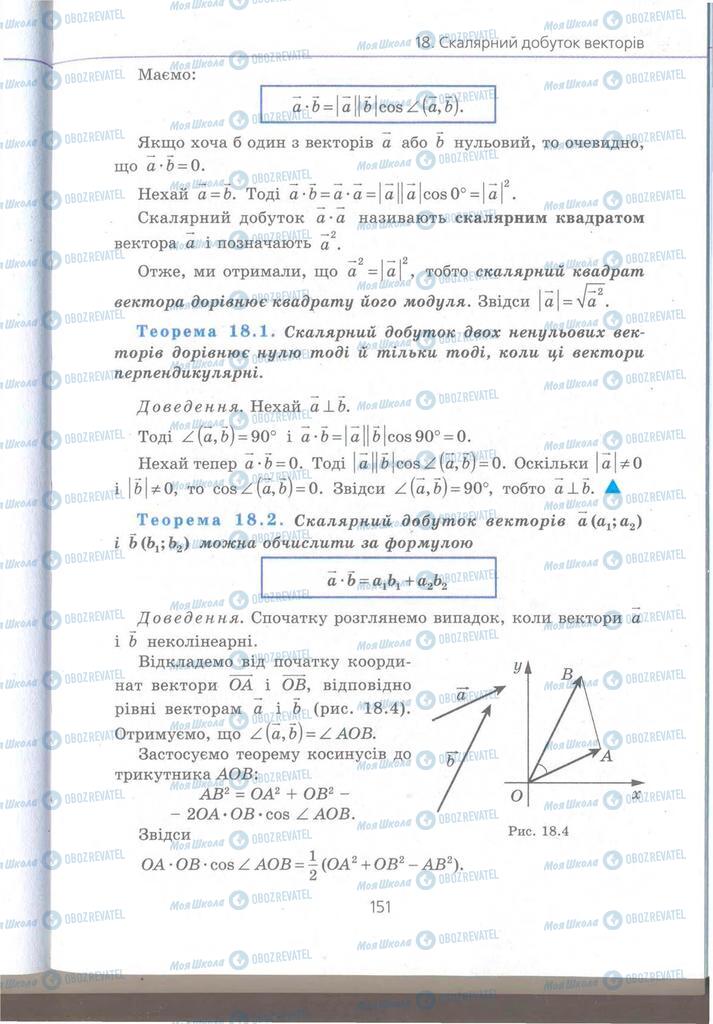 18. Скалярний добуток векторів
Маємо:
a⃗ · b⃗ = |a⃗||b⃗| cos ∠(a⃗, b⃗).
Якщо хоча б один з векторів a⃗ або b⃗ нульовий, то очевидно,
що a⃗ · b⃗ = 0.
Нехай a⃗ = b⃗. Тоді a⃗ · b⃗ = a⃗ · a⃗ = |a⃗||a⃗| cos 0° = |a⃗|².
Скалярний добуток a⃗ · a⃗ називають скалярним квадратом
вектора a⃗ і позначають a⃗².
Отже, ми отримали, що a⃗² = |a⃗|², тобто скалярний квадрат
вектора дорівнює квадрату його модуля. Звідси |a⃗| = √a⃗².
Теорема 18.1. Скалярний добуток двох ненульових век-
торів дорівнює нулю тоді й тільки тоді, коли ці вектори
перпендикулярні.
Доведення. Нехай a⃗ ⊥ b⃗.
Тоді ∠(a⃗, b⃗) = 90° і a⃗ · b⃗ = |a⃗||b⃗| cos 90° = 0.
Нехай тепер a⃗ · b⃗ = 0. Тоді |a⃗||b⃗| cos ∠(a⃗, b⃗) = 0. Оскільки |a⃗| ≠ 0
і |b⃗| ≠ 0, то cos ∠(a⃗, b⃗) = 0. Звідси ∠(a⃗, b⃗) = 90°, тобто a⃗ ⊥ b⃗. ▲
Теорема 18.2. Скалярний добуток векторів a⃗ (a₁; a₂)
і b⃗ (b₁; b₂) можна обчислити за формулою
a⃗ · b⃗ = a₁b₁ + a₂b₂
Доведення. Спочатку розглянемо випадок, коли вектори a⃗
і b⃗ неколінеарні.
Відкладемо від початку коорди-
нат вектори OA і OB, відповідно
рівні векторам a⃗ і b⃗ (рис. 18.4).
Отримуємо, що ∠(a⃗, b⃗) = ∠ AOB.
Застосуємо теорему косинусів до
трикутника AOB:
AB² = OA² + OB² –
– 2OA · OB · cos ∠ AOB.
Звідси
OA · OB · cos ∠ AOB = 1/2 (OA² + OB² – AB²).
a⃗
b⃗
y
B
A
O
x
Рис. 18.4
151
МояШкола OBOZREVATEL